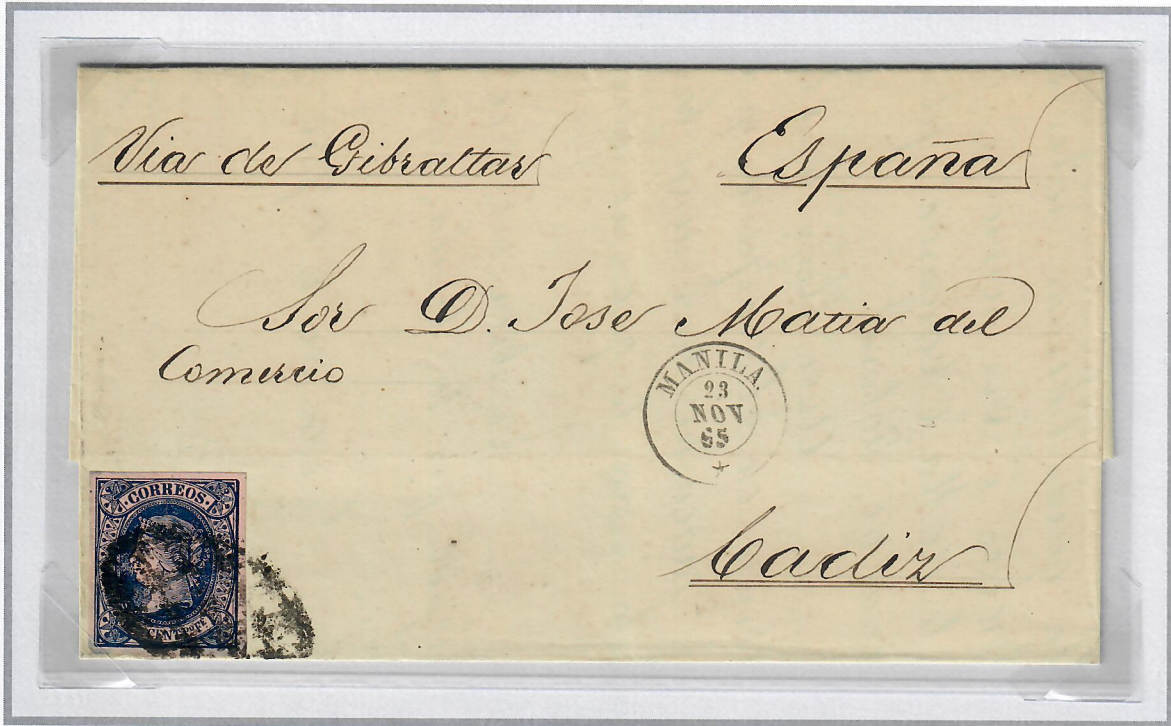 Via de Gibraltar España
Sor D. Jose Matia del
Comercio
MANILA.
23
NOV
65
Cadiz
CORREOS
CENT. Po. FE